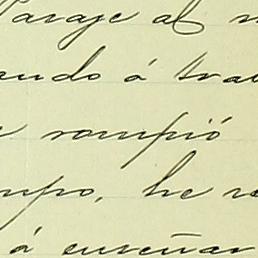 Paraje al
ando á tra
rompió
mpo, he re
á enseñar